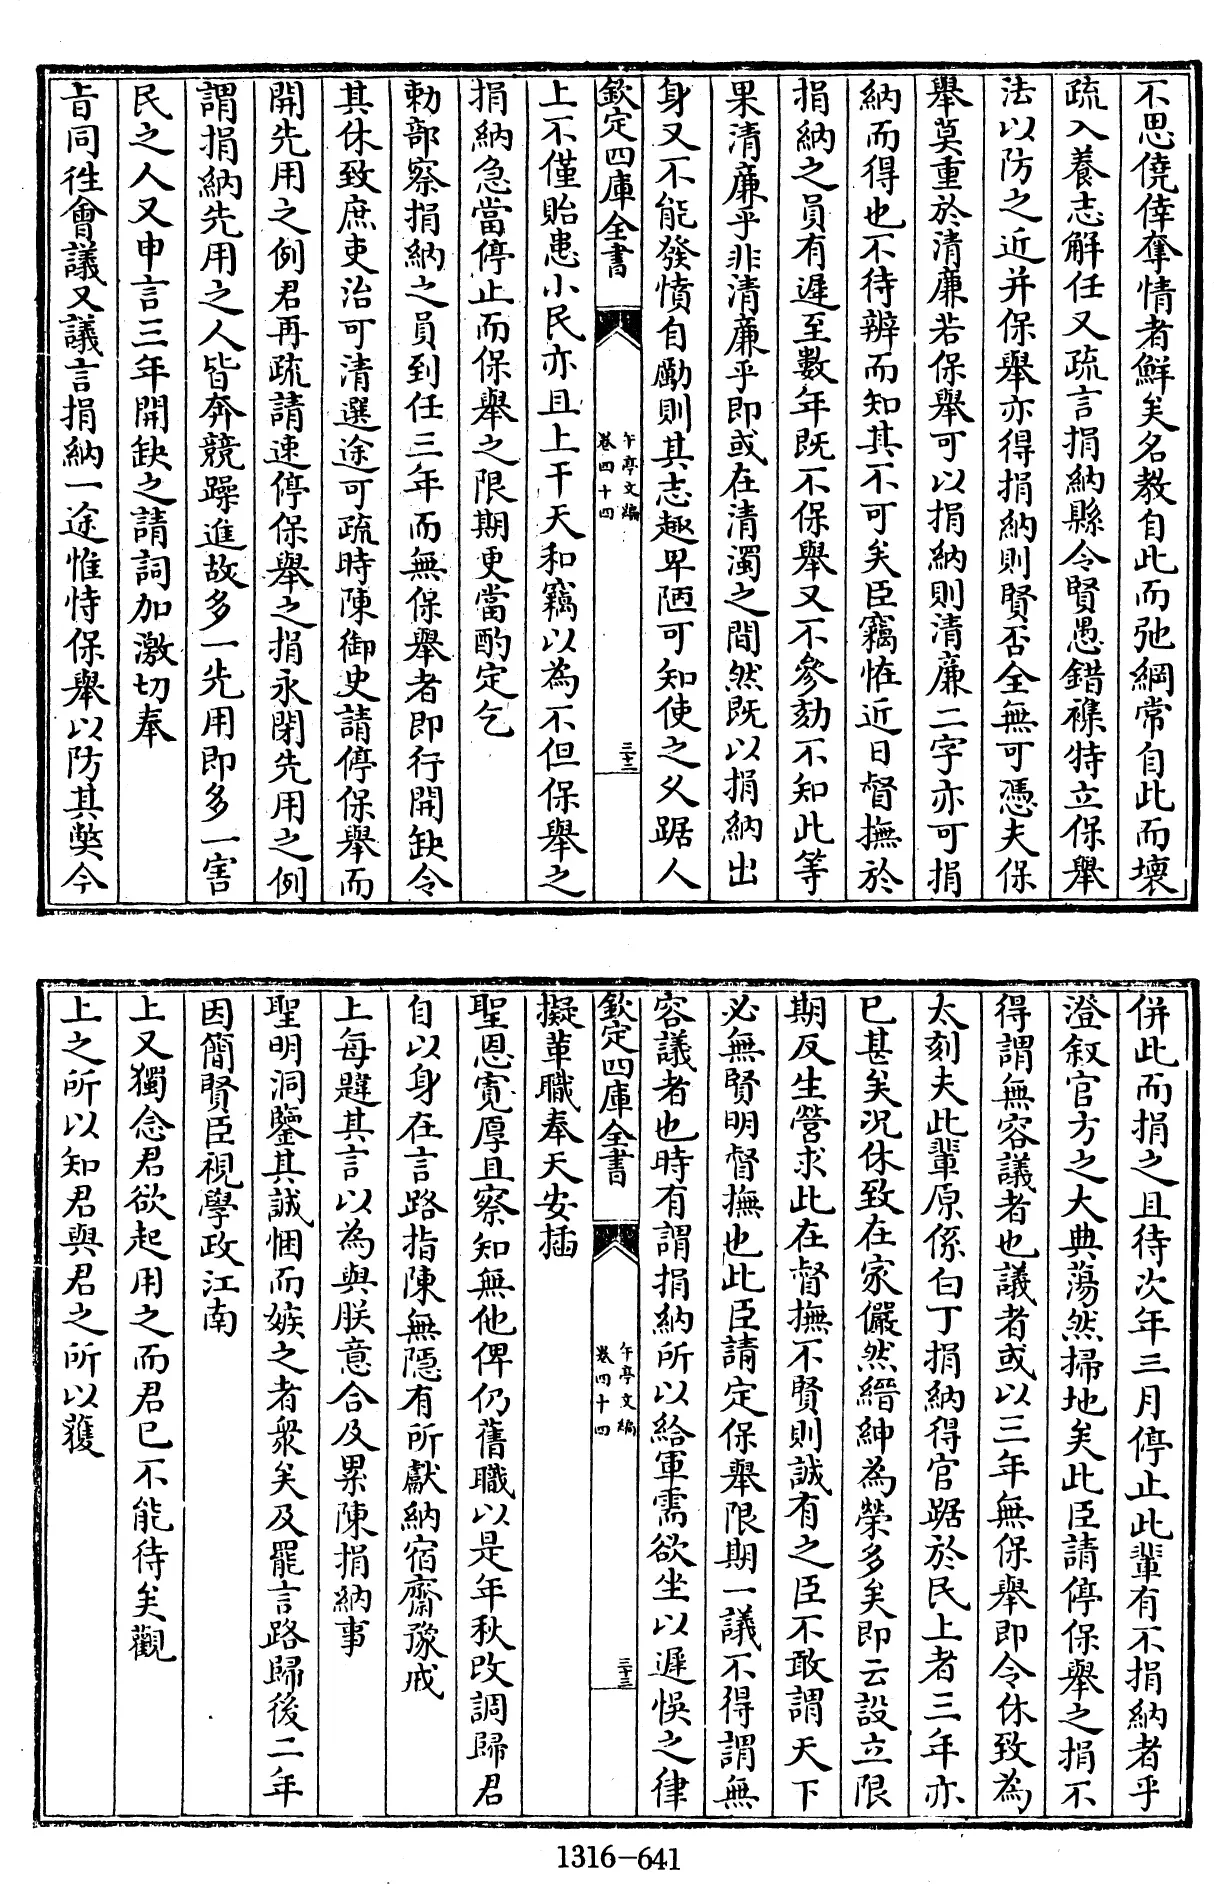 不思僥倖奪情者鮮矣名教自此而弛綱常自此而壞
疏入養志解任又疏言捐納縣令賢愚錯襍特立保舉
法以防之近并保舉亦得捐納則賢否全無可憑夫保
舉莫重於清廉若保舉可以捐納則清廉二字亦可捐
納而得也不待辨而知其不可矣臣竊恠近日督撫於
捐納之員有遲至數年既不保舉又不參劾不知此等
果清廉乎非清廉乎即或在清濁之間然既以捐納出
身又不能發憤自勵則其志趣卑陋可知使之久踞人
欽定四庫全書
午亭文編
卷四十四
三十二
上不僅貽患小民亦且上干天和竊以為不但保舉之
捐納急當停止而保舉之限期更當酌定乞
勅部察捐納之員到任三年而無保舉者即行開缺令
其休致庶吏治可清選途可疏時陳御史請停保舉而
開先用之例君再疏請速停保舉之捐永閉先用之例
謂捐納先用之人皆奔競躁進故多一先用即多一害
民之人又申言三年開缺之請詞加激切奉
旨同往會議又議言捐納一途惟恃保舉以防其弊今
併此而捐之且待次年三月停止此輩有不捐納者乎
澄敘官方之大典蕩然掃地矣此臣請停保舉之捐不
得謂無容議者也議者或以三年無保舉即令休致為
太刻夫此輩原係白丁捐納得官踞於民上者三年亦
已甚矣況休致在家儼然縉紳為榮多矣即云設立限
期反生營求此在督撫不賢則誠有之臣不敢謂天下
必無賢明督撫也此臣請定保舉限期一議不得謂無
容議者也時有謂捐納所以給軍需欲坐以遲悞之律
欽定四庫全書
午亭文編
卷四十四
三十三
擬革職奉天安插
聖恩寬厚且察知無他俾仍舊職以是年秋改調歸君
自以身在言路指陳無隱有所獻納宿齋豫戒
上每韙其言以為與朕意合及累陳捐納事
聖明洞鑒其誠悃而嫉之者衆矣及罷言路歸後二年
因簡賢臣視學政江南
上又獨念君欲起用之而君已不能待矣觀
上之所以知君與君之所以獲
1316-641